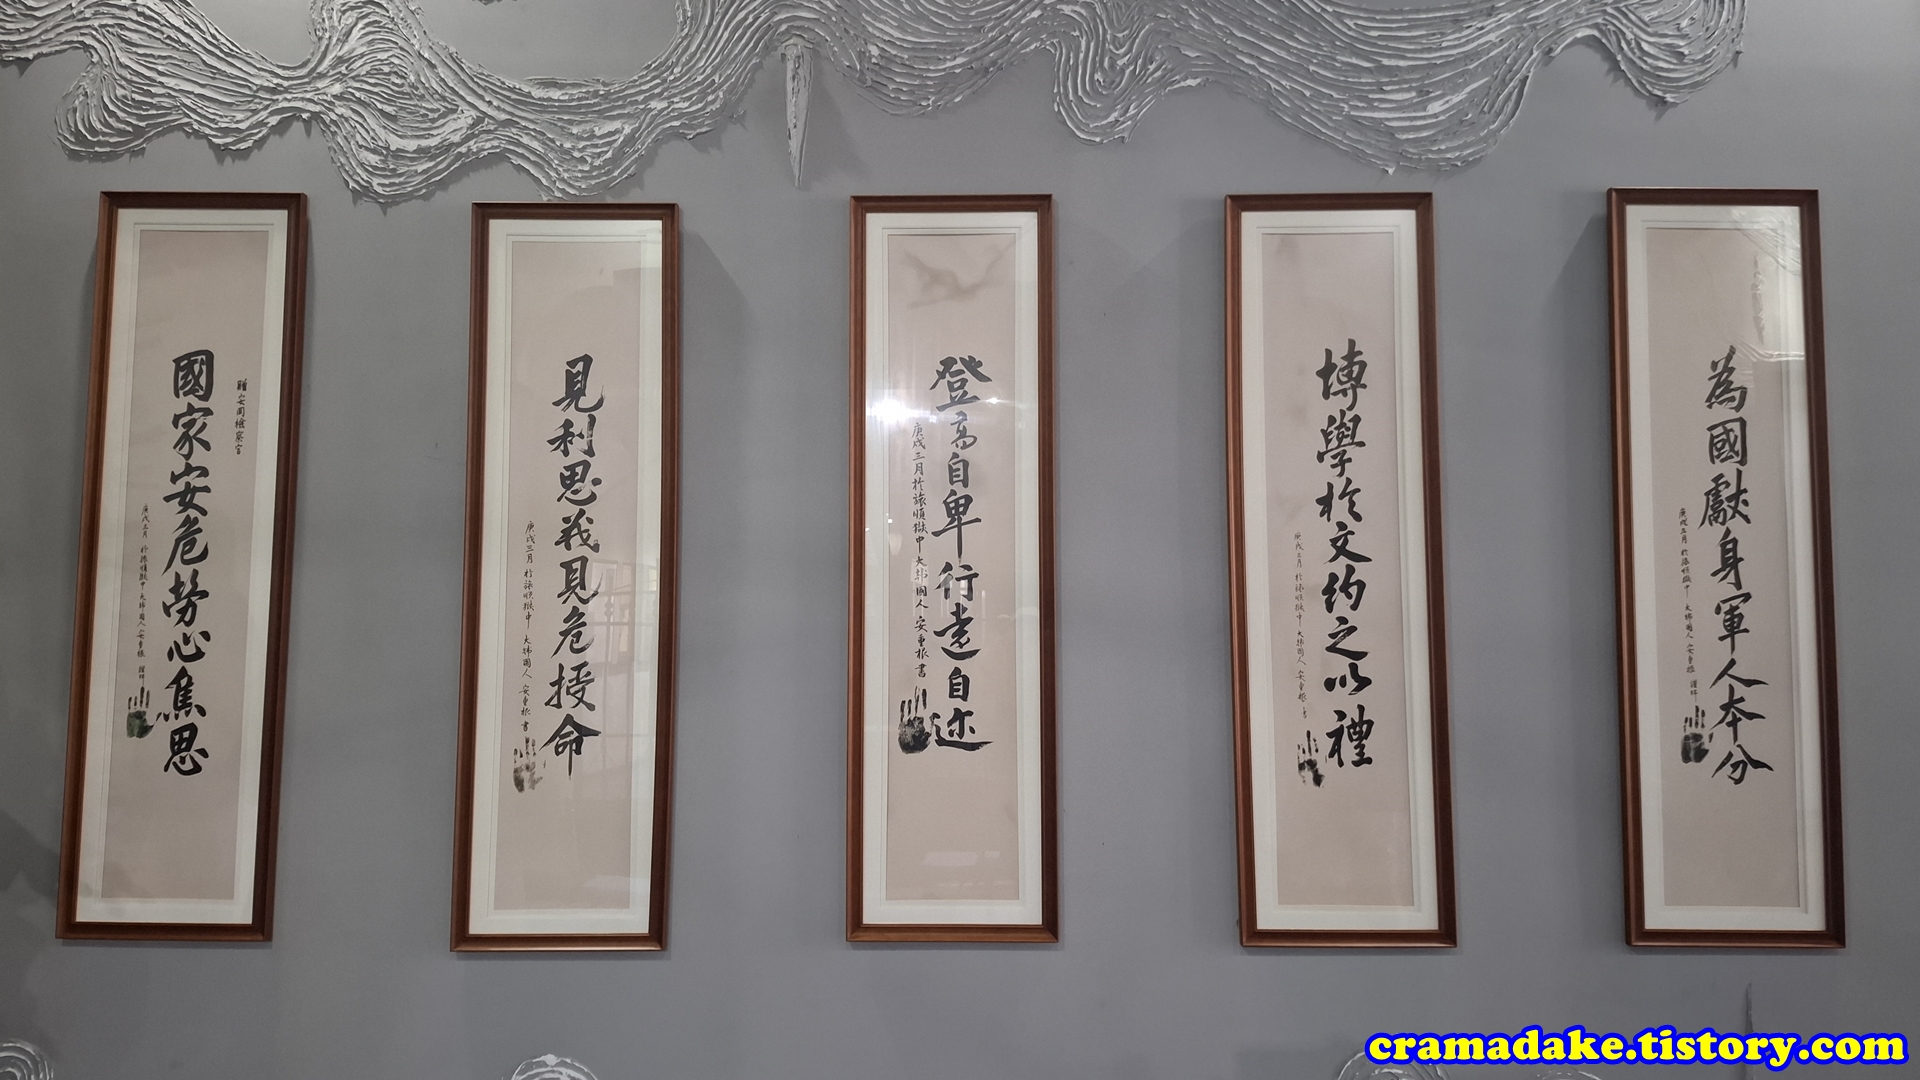 贈安岡檢察官
國家安危勞心焦思
庚戌三月 於旅順獄中 大韓國人 安重根 謹拜
見利思義見危授命
庚戌三月 於旅順獄中 大韓國人 安重根 書
登高自卑行遠自迩
庚戌三月 於旅順獄中 大韓國人 安重根 書
博學於文約之以禮
庚戌三月 於旅順獄中 大韓國人 安重根 書
為國獻身軍人本分
庚戌三月 於旅順獄中 大韓國人 安重根 謹拜
cramadake.tistory.com